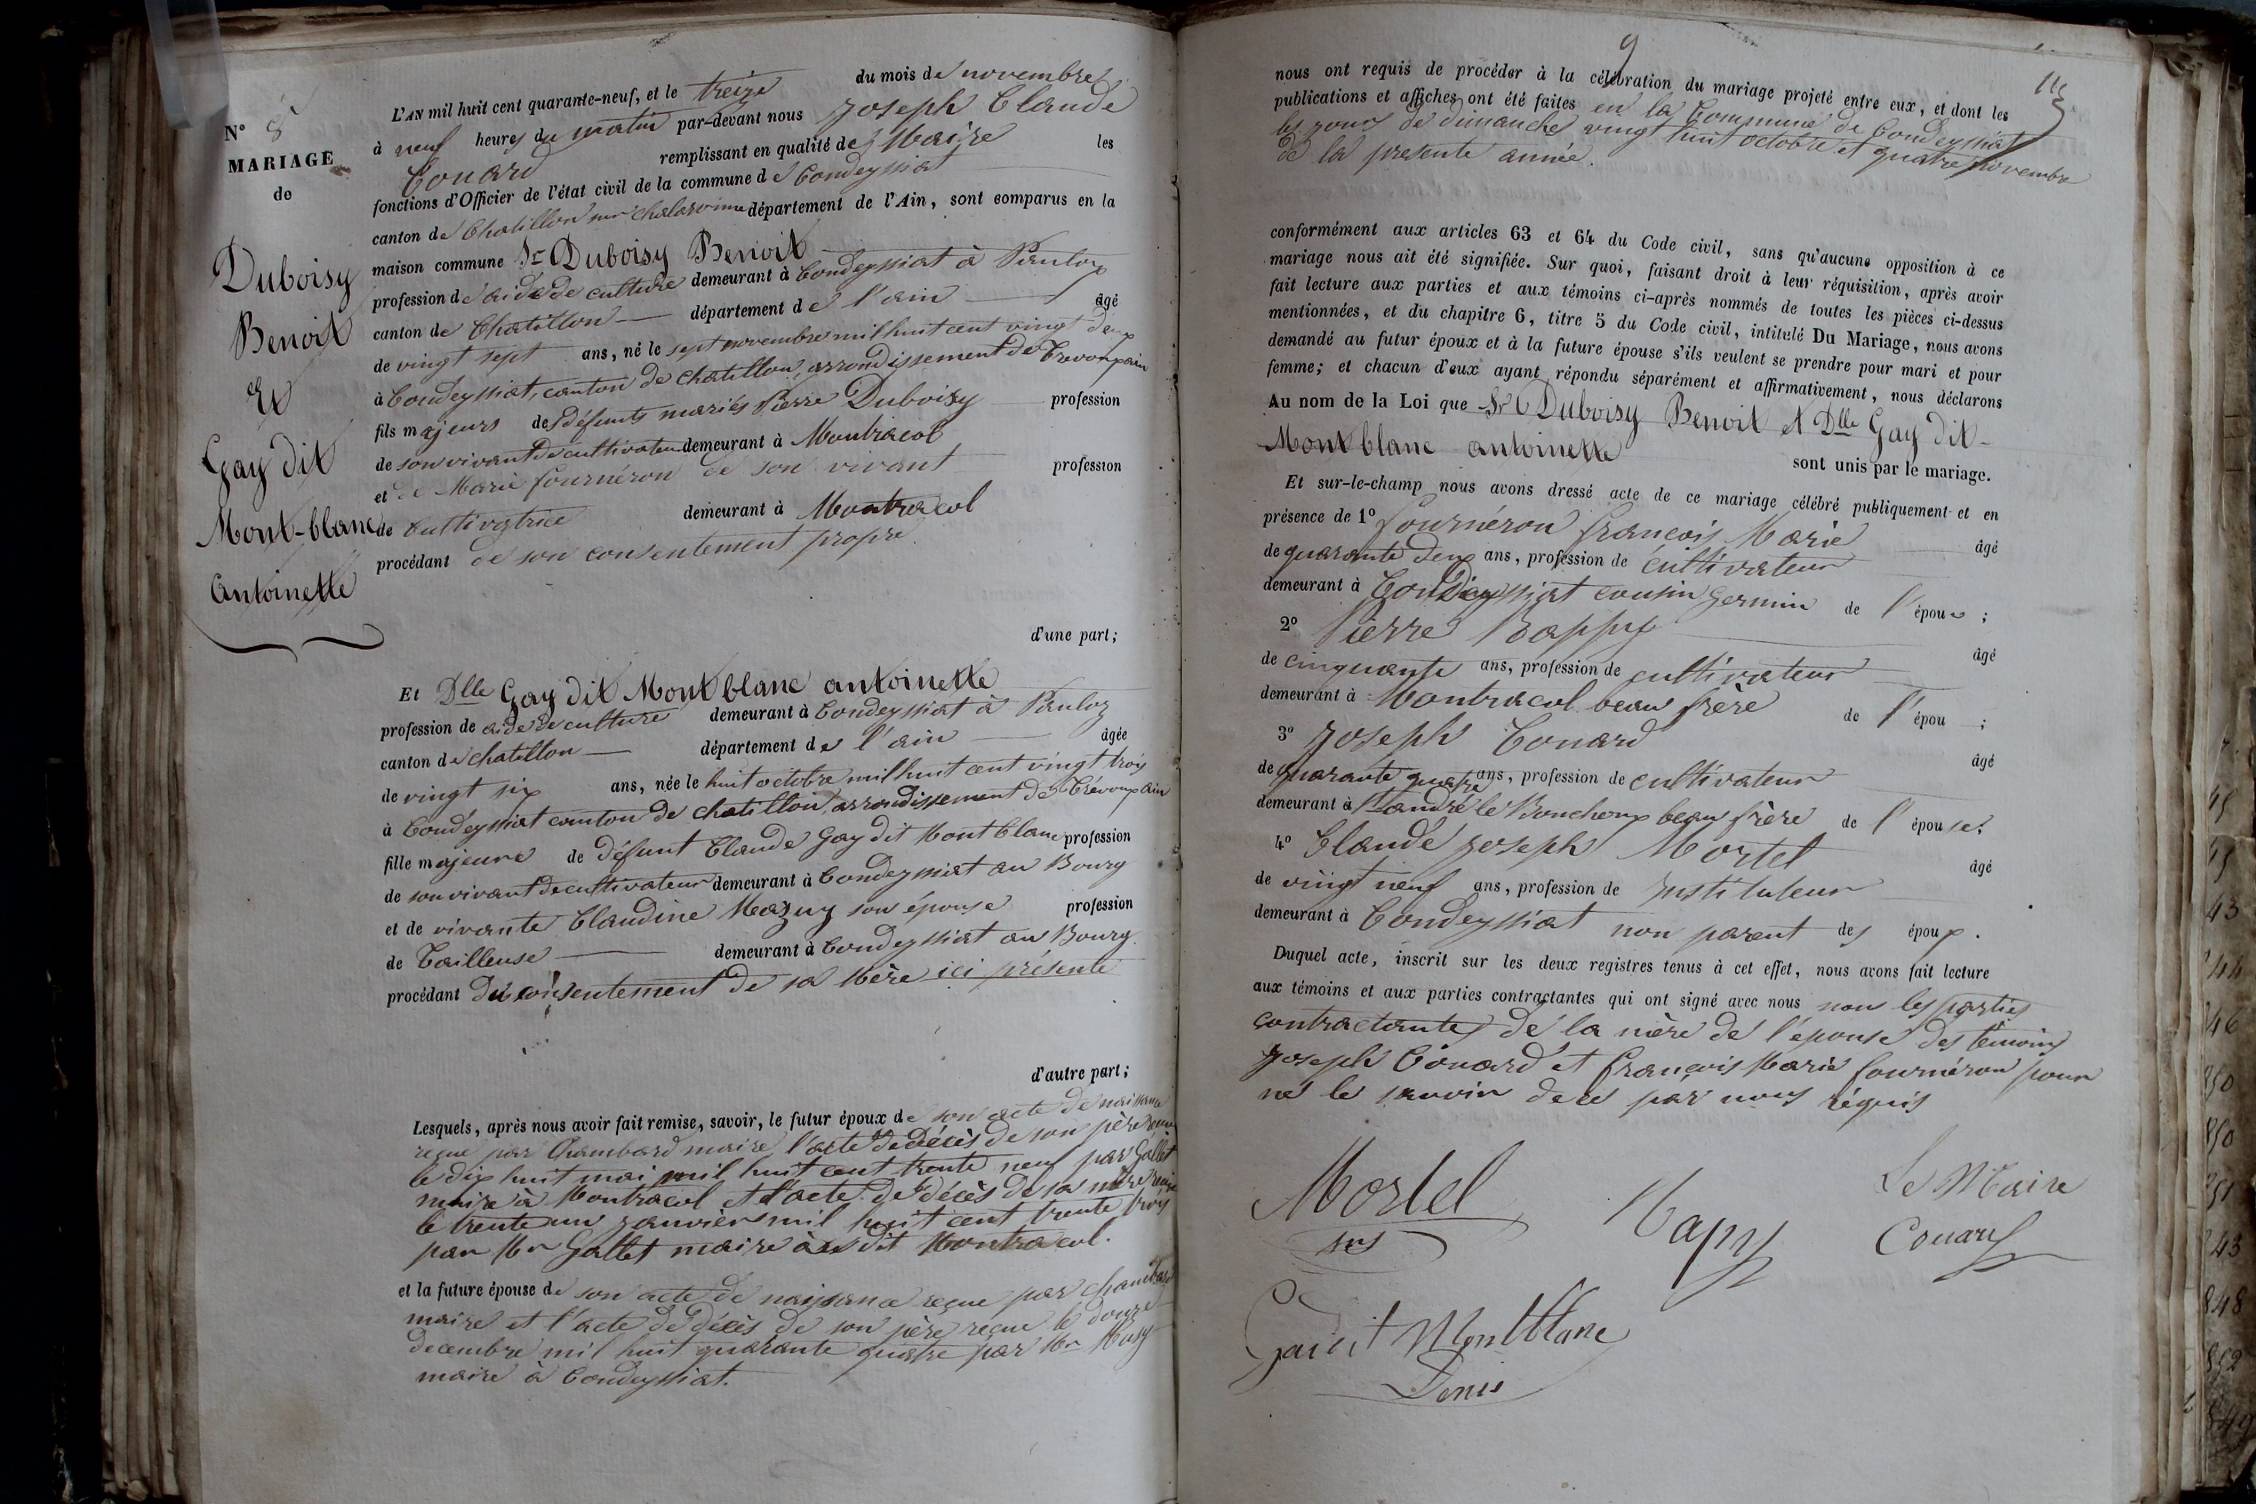 N° 8
MARIAGE
de
Duboisy
Benoit
et
Gay dit
Mont-blanc
antoinette
L'AN mil huit cent quarante-neuf, et le treize du mois de novembre
à neuf heures du matin par-devant nous Joseph Claude
Couard remplissant en qualité de Maire les
fonctions d'Officier de l'état civil de la commune de Condeyssiat
canton de Chatillon sur chalaronne département de l'Ain, sont comparus en la
maison commune Sr Duboisy Benoit
profession de aide de culture demeurant à Condeyssiat à
canton de Chatillon département de l'ain âgé
de vingt sept ans, né le sept novembre mil huit cent vingt deux
à Condeyssiat, canton de chatillon, arrondissement de Trevoux, ain
fils majeurs des défunts mariés Pierre Duboisy profession
de son vivant de cultivateur demeurant à Montracol
et de Marie fournéron de son vivant profession
de cultivatrice demeurant à Montracol
procédant de son consentement propre.
d'une part;
Et Dlle Gay dit Mont blanc antoinette
profession de aide de culture demeurant à Condeyssiat à
canton de chatillon département de l'ain âgée
de vingt six ans, née le huit octobre mil huit cent vingt trois
à Condeyssiat canton de chatillon, arrondissement de Trévoux ain
fille majeure de défunt Claude Gay dit Mont blanc profession
de son vivant de cultivateur demeurant à Condeyssiat au Bourg
et de vivante Claudine Mazuy son épouse profession
de Tailleuse demeurant à Condeyssiat au Bourg.
procédant du consentement de sa Mère ici présente
d'autre part;
Lesquels, après nous avoir fait remise, savoir, le futur époux de son acte de naissance
reçue par Chambard maire, l'acte de décès de son père reçue
le dix huit mai mil huit cent trente neuf par Gallet
maire à Montracol et l'acte de décès de sa mère reçue
le trente un janvier mil huit cent trente trois
par Mr Gallet maire à dit Montracol.
et la future épouse de son acte de naissance reçue par chambard
maire et l'acte de décès de son père reçue le douze
decembre mil huit quarante quatre par Mr
maire à Condeyssiat.
9
nous ont requis de procéder à la célébration du mariage projeté entre eux, et dont les
publications et affiches ont été faites en la Commune de Condeyssiat
les jours de dimanche vingt huit octobre et quatre novembre
de la presente année.
conformément aux articles 63 et 64 du Code civil, sans qu'aucune opposition à ce
mariage nous ait été signifiée. Sur quoi, faisant droit à leur réquisition, après avoir
fait lecture aux parties et aux témoins ci-après nommés de toutes les pièces ci-dessus
mentionnées, et du chapitre 6, titre 5 du Code civil, intitulé Du Mariage, nous avons
demandé au futur époux et à la future épouse s'ils veulent se prendre pour mari et pour
femme; et chacun d'eux ayant répondu séparément et affirmativement, nous déclarons
Au nom de la Loi que Sr Duboisy Benoit et Dlle Gay dit-
Mont blanc antoinette sont unis par le mariage.
Et sur-le-champ nous avons dressé acte de ce mariage célébré publiquement et en
présence de 1° fournéron françois Marie âgé
de quarante deux ans, profession de cultivateur
demeurant à Condeyssiat cousin germin de l'époux ;
2° Pierre âgé
de cinquante ans, profession de cultivateur
demeurant à Montracol beau frère de l'épou ;
3° Joseph Couard âgé
de quarante quatre ans, profession de cultivateur
demeurant à St andré le Bouchoux beau frère de l'épouse.
4° Claude Joseph Mortel âgé
de vingt neuf ans, profession de Instituteur
demeurant à Condeyssiat non parent des époux.
Duquel acte, inscrit sur les deux registres tenus à cet effet, nous avons fait lecture
aux témoins et aux parties contractantes qui ont signé avec nous non les parties
contractantes de la mère de l'épouse des témoins
Joseph Couard et françois Marie fournéron pour
ne le savoir de ce par nous réquis
Mortel
Le Maire
Couard
Gai dit Montblanc
Denis